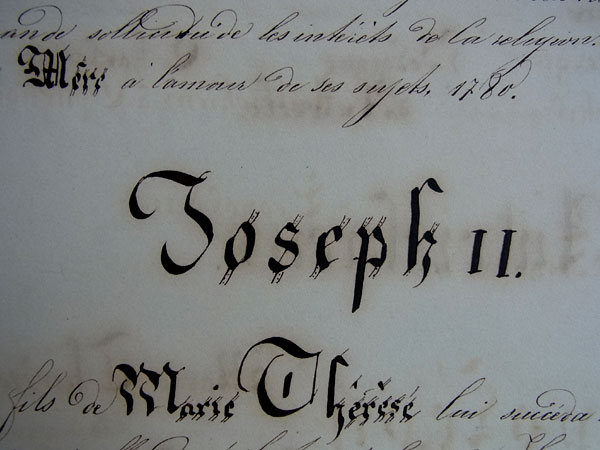 ande sollicitude les intérêts de la religion.
Mère à l'amour de ses sujets, 1780.
Joseph II.
fils de Marie Thérèse lui succéda